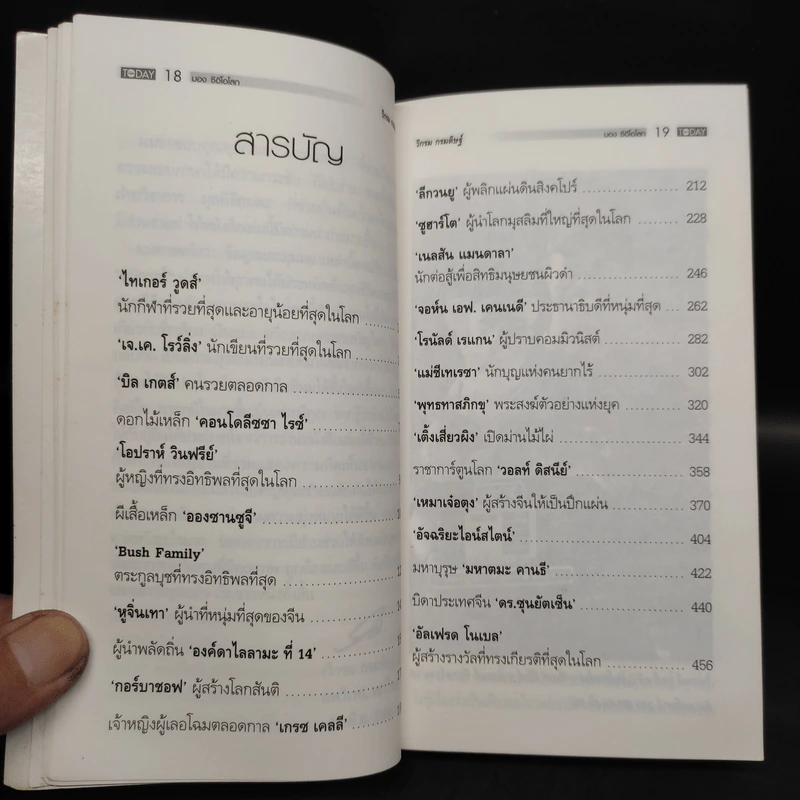 TODAY 18 มอง ซีอีโอโลก
สารบัญ
'ไทเกอร์ วูดส์'
นักกีฬาที่รวยที่สุดและอายุน้อยที่สุดในโลก
'เจ.เค. โรว์ลิ่ง' นักเขียนที่รวยที่สุดในโลก
'บิล เกตส์' คนรวยตลอดกาล
ดอกไม้เหล็ก 'คอนโดลีซซา ไรซ์'
'โอปราห์ วินฟรีย์'
ผู้หญิงที่ทรงอิทธิพลที่สุดในโลก
ผีเสื้อเหล็ก 'อองซานซูจี'
'Bush Family'
ตระกูลบุชที่ทรงอิทธิพลที่สุด
'หูจิ่นเทา' ผู้นำที่หนุ่มที่สุดของจีน
ผู้นำพลัดถิ่น 'องค์ดาไลลามะ ที่ 14'
'กอร์บาชอฟ' ผู้สร้างโลกสันติ
เจ้าหญิงผู้เลอโฉมตลอดกาล 'เกรซ เคลลี่'
วิกรม กรมดิษฐ์ มอง ซีอีโอโลก 19 TODAY
'ลีกวนยู' ผู้พลิกแผ่นดินสิงคโปร์ 212
'ซูฮาร์โต' ผู้นำโลกมุสลิมที่ใหญ่ที่สุดในโลก 228
'เนลสัน แมนดาลา'
นักต่อสู้เพื่อสิทธิมนุษยชนผิวดำ 246
'จอห์น เอฟ. เคนเนดี' ประธานาธิบดีที่หนุ่มที่สุด 262
'โรนัลด์ เรแกน' ผู้ปราบคอมมิวนิสต์ 282
'แม่ชีเทเรซา' นักบุญแห่งคนยากไร้ 302
'พุทธทาสภิกขุ' พระสงฆ์ตัวอย่างแห่งยุค 320
'เติ้งเสี่ยวผิง' เปิดม่านไม้ไผ่ 344
ราชาการ์ตูนโลก 'วอลท์ ดิสนีย์' 358
'เหมาเจ๋อตุง' ผู้สร้างจีนให้เป็นปึกแผ่น 370
'อัจฉริยะไอน์สไตน์' 404
มหาบุรุษ 'มหาตมะ คานธี' 422
บิดาประเทศจีน 'ดร.ซุนยัตเซ็น' 440
'อัลเฟรด โนเบล'
ผู้สร้างรางวัลที่ทรงเกียรติที่สุดในโลก 456